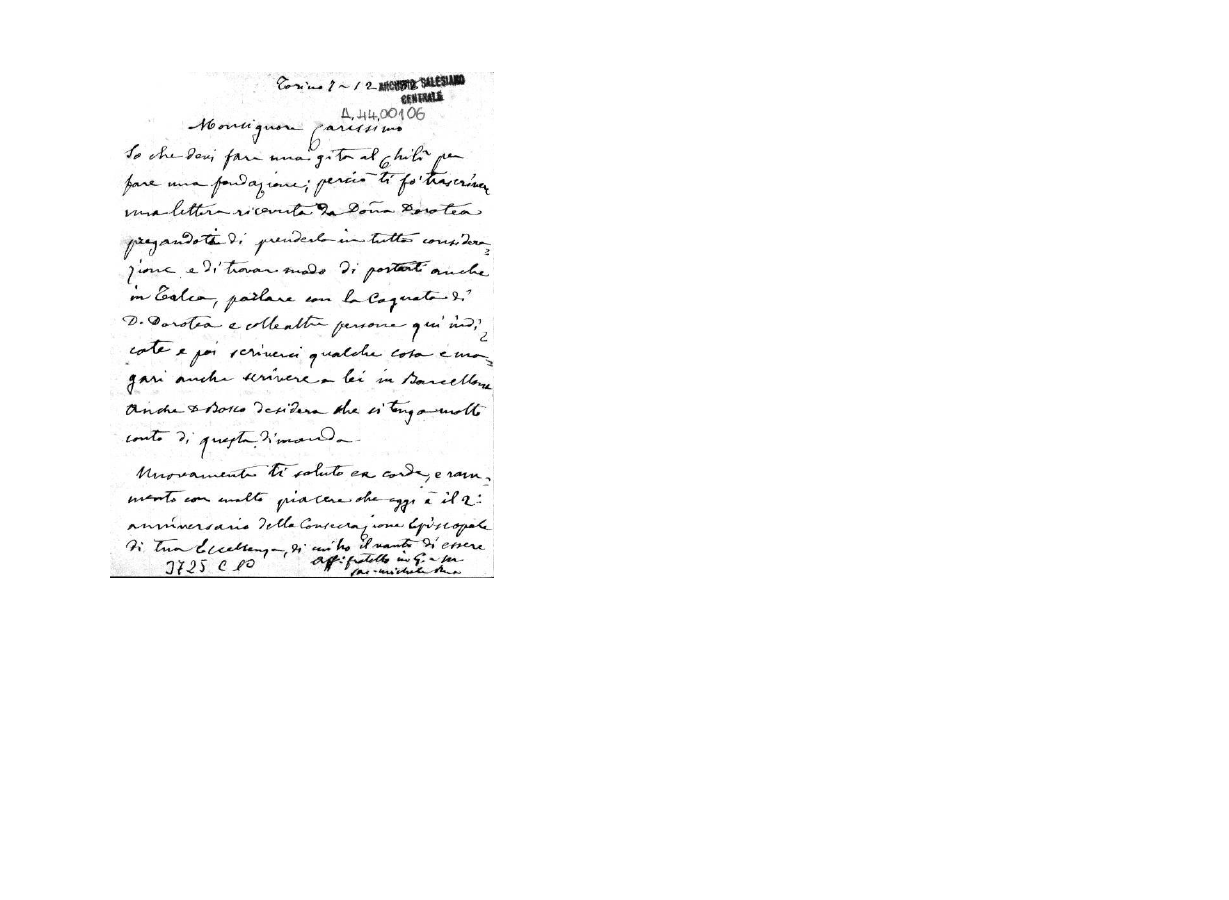 Torino 7-12
ARCHIVIO SALESIANO
CENTRALE
A.44.00106
Monsignore Carissimo
So che devi fare una gita al Chilì per
fare una fondazione; perciò ti fo' trascrivere
una lettera ricevuta da Doña Dorotea
pregandoti di prenderla in tutta considera=
zione e di trovar modo di portarti anche
in Talca, parlare con la Cognata di
D. Dorotea e colle altre persone qui indi=
cate e poi scriverci qualche cosa e ma=
gari anche scrivere a lei in Barcellona
Anche D Bosco desidera che si tenga molto
conto di questa dimanda.
Nuovamente ti saluto ex corde, e ram=
mento con molto piacere che oggi è il 2º
anniversario della Consecrazione Episcopale
di tua Eccellenza, di cui ho il vanto di essere
Aff. fratello in G. e M
3725 C 10
Sac. Michele Rua